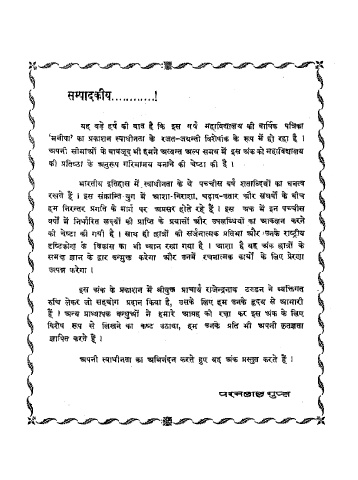 सम्पादकीय............!
यह बड़े हर्ष की बात है कि इस वर्ष महाविद्यालय की वार्षिक पत्रिका
'मनीषा' का प्रकाशन स्वाधीनता के रजत-जयन्ती विशेषांक के रूप में हो रहा है ।
अपनी सीमाओं के बावजूद भी हमने अत्यन्त अल्प समय में इस अंक को महाविद्यालय
की प्रतिष्ठा के अनुरूप गरिमामय बनाने की चेष्टा की है ।
भारतीय इतिहास में स्वाधीनता के ये पच्चीस वर्ष शताब्दियों का घनत्व
रखते हैं । इस संक्रान्ति-युग में आशा-निराशा, चढ़ाव-उतार और संघर्षों के बीच
हम निरन्तर प्रगति के मार्ग पर अग्रसर होते रहे हैं । इस अंक में इन पच्चीस
वर्षों में निर्धारित लक्ष्यों की प्राप्ति के प्रयासों और उपलब्धियों का आकलन करने
की चेष्टा की गयी है । साथ ही छात्रों की सर्जनात्मक प्रतिभा और उनके राष्ट्रीय
दृष्टिकोण के विकास का भी ध्यान रखा गया है । आशा है यह अंक छात्रों के
समक्ष ज्ञान के द्वार उन्मुक्त करेगा और उनमें रचनात्मक कार्यों के लिए प्रेरणा
उत्पन्न करेगा ।
इस अंक के प्रकाशन में श्रीयुत प्राचार्य राजेन्द्रनाथ टण्डन ने व्यक्तिगत
रुचि लेकर जो सहयोग प्रदान किया है, उसके लिए हम उनके हृदय से आभारी
हैं । अन्य प्राध्यापक बन्धुओं ने हमारे आग्रह की रक्षा कर इस अंक के लिए
विशेष रूप से लिखने का कष्ट उठाया, हम उनके प्रति भी अपनी कृतज्ञता
ज्ञापित करते हैं ।
अपनी स्वाधीनता का अभिनंदन करते हुए यह अंक प्रस्तुत करते हैं ।
परमलाल गुप्त